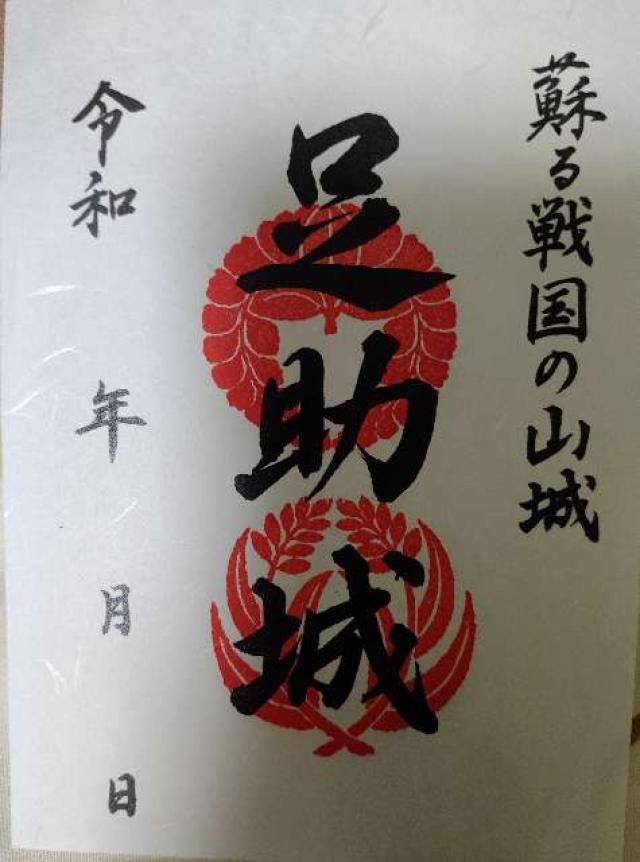 蘇る戦国の山城
足助城
令和 年 月 日